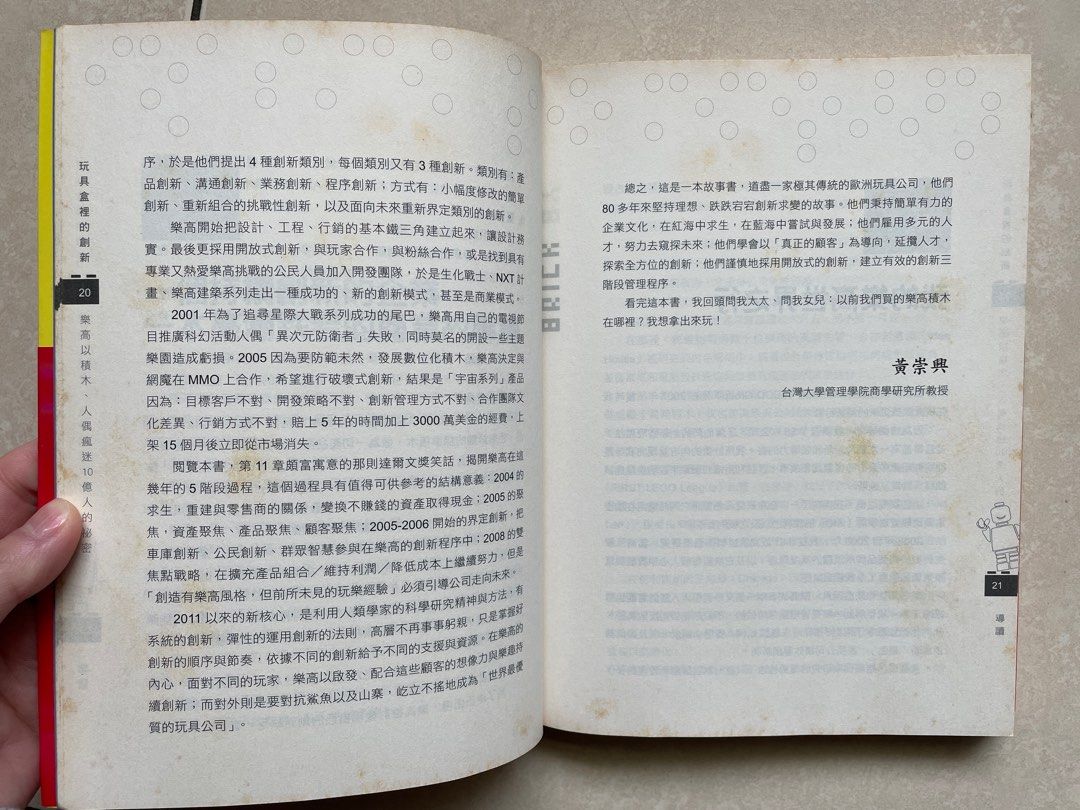 玩具盒裡的創新
20
樂高以積木、人偶瘋迷10億人的秘密
序，於是他們提出 4 種創新類別，每個類別又有 3 種創新。類別有：產
品創新、溝通創新、業務創新、程序創新；方式有：小幅度修改的簡單
創新、重新組合的挑戰性創新，以及面向未來重新界定類別的創新。
樂高開始把設計、工程、行銷的基本鐵三角建立起來，讓設計務
實。最後更採用開放式創新，與玩家合作，與粉絲合作，或是找到具有
專業又熱愛樂高挑戰的公民人員加入開發團隊，於是生化戰士、NXT 計
畫、樂高建築系列走出一種成功的、新的創新模式，甚至是商業模式。
2001 年為了追尋星際大戰系列成功的尾巴，樂高用自己的電視節
目推廣科幻活動人偶「異次元防衛者」失敗，同時莫名的開設一些主題
樂園造成虧損。2005 因為要防範未然，發展數位化積木，樂高決定與
網魔在 MMO 上合作，希望進行破壞式創新，結果是「宇宙系列」產品
因為：目標客戶不對、開發策略不對、創新管理方式不對、合作團隊文
化差異、行銷方式不對，賠上 5 年的時間加上 3000 萬美金的經費，上
架 15 個月後立即從市場消失。
閱覽本書，第 11 章頗富寓意的那則達爾文獎笑話，揭開樂高在這
幾年的 5 階段過程，這個過程具有值得可供參考的結構意義：2004 的
求生，重建與零售商的關係，變換不賺錢的資產取得現金；2005 的聚
焦，資產聚焦、產品聚焦、顧客聚焦；2005-2006 開始的界定創新，把
車庫創新、公民創新、群眾智慧參與在樂高的創新程序中；2008 的雙
焦點戰略，在擴充產品組合／維持利潤／降低成本上繼續努力，但是
「創造有樂高風格，但前所未見的玩樂經驗」必須引導公司走向未來。
2011 以來的新核心，是利用人類學家的科學研究精神與方法，有
系統的創新，彈性的運用創新的法則，高層不再事事躬親，只是掌握好
創新的順序與節奏，依據不同的創新給予不同的支援與資源。在樂高的
內心，面對不同的玩家，樂高以啟發、配合這些顧客的想像力與樂趣持
續創新；而對外則是要對抗鯊魚以及山寨，屹立不搖地成為「世界最優
質的玩具公司」。
總之，這是一本故事書，道盡一家極其傳統的歐洲玩具公司，他們
80 多年來堅持理想、跌跌宕宕創新求變的故事。他們秉持簡單有力的
企業文化，在紅海中求生，在藍海中嘗試與發展；他們雇用多元的人
才，努力去窺探未來；他們學會以「真正的顧客」為導向，延攬人才，
探索全方位的創新；他們謹慎地採用開放式的創新，建立有效的創新三
階段管理程序。
看完這本書，我回頭問我太太、問我女兒：以前我們買的樂高積木
在哪裡？我想拿出來玩！
黃崇興
台灣大學管理學院商學研究所教授
21
導讀